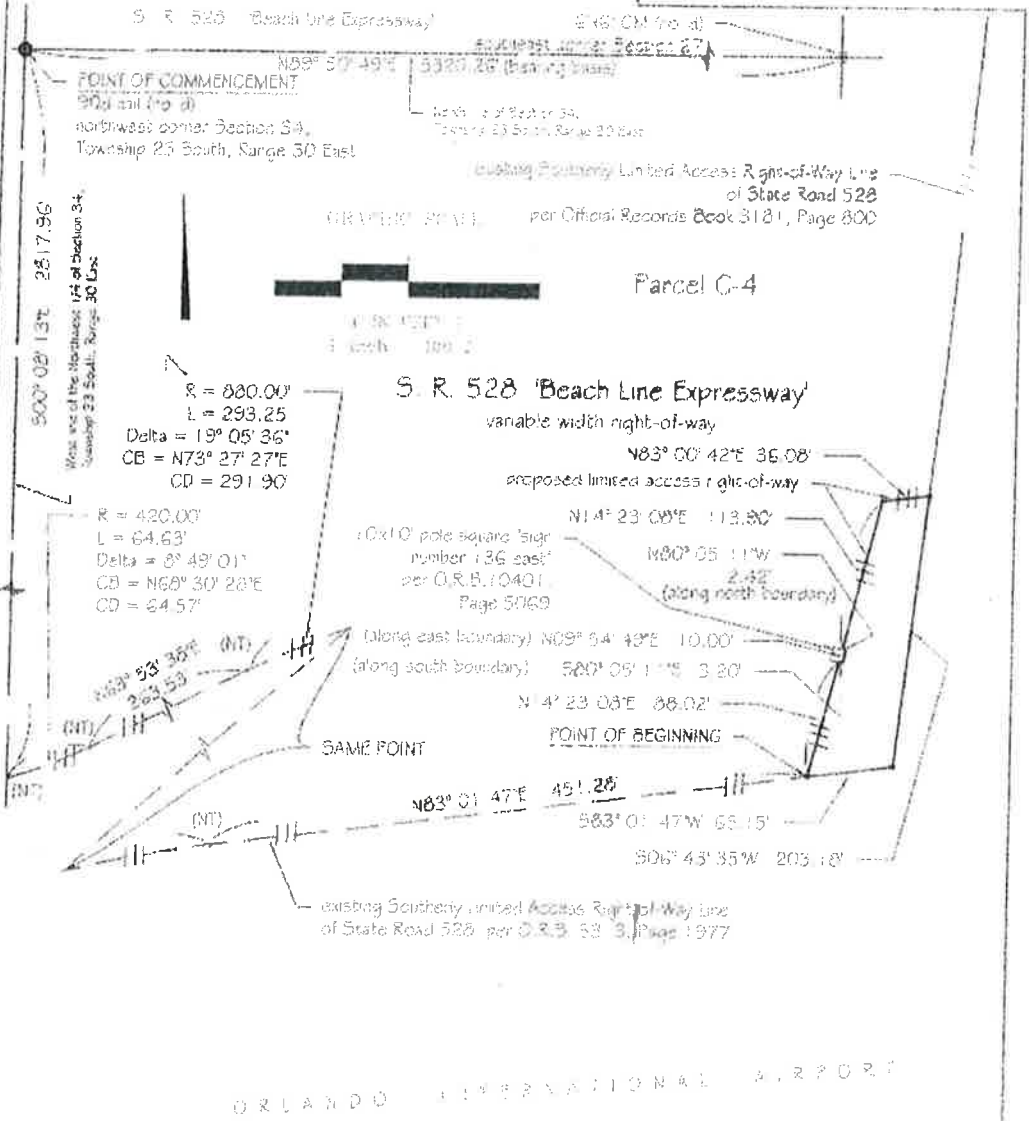 S. R. 528 'Beach Line Expressway'
6"x6" CM (no id)
southeast corner Section 27
N89° 50' 49"E 5320.26' (bearing basis)
POINT OF COMMENCEMENT
90d nail (no id)
northwest corner Section 34,
Township 23 South, Range 30 East
North line of Section 34,
Township 23 South, Range 30 East
existing Southerly Limited Access Right-of-Way Line
of State Road 528
per Official Records Book 3181, Page 800
S00° 08' 13"E 2817.96'
West line of the Northwest 1/4 of Section 34,
Township 23 South, Range 30 East
GRAPHIC SCALE
Parcel C-4
R = 880.00'
L = 293.25
Delta = 19° 05' 36"
CB = N73° 27' 27"E
CD = 291.90'
S. R. 528 'Beach Line Expressway'
variable width right-of-way
N83° 00' 42"E 36.08'
proposed limited access right-of-way
N14° 23' 08"E 113.80'
R = 420.00'
L = 64.63'
Delta = 8° 49' 01"
CB = N68° 30' 28"E
CD = 64.57'
10x10' pole square 'sign
number 136 east'
per O.R.B. 10401,
Page 5069
N80° 05' 11"W
2.42'
(along north boundary)
(along east boundary) N09° 54' 49"E 10.00'
(along south boundary) S80° 05' 11"E 3.20'
N14° 23' 08"E 88.02'
POINT OF BEGINNING
N63° 53' 38"E (NT)
263.53'
(NT)
(NT)
SAME POINT
N83° 01' 47"E 451.28'
(NT)
S83° 01' 47"W 65.15'
S06° 43' 35"W 203.18'
existing Southerly Limited Access Right-of-Way Line
of State Road 528 per O.R.B. Page 1977
ORLANDO INTERNATIONAL AIRPORT